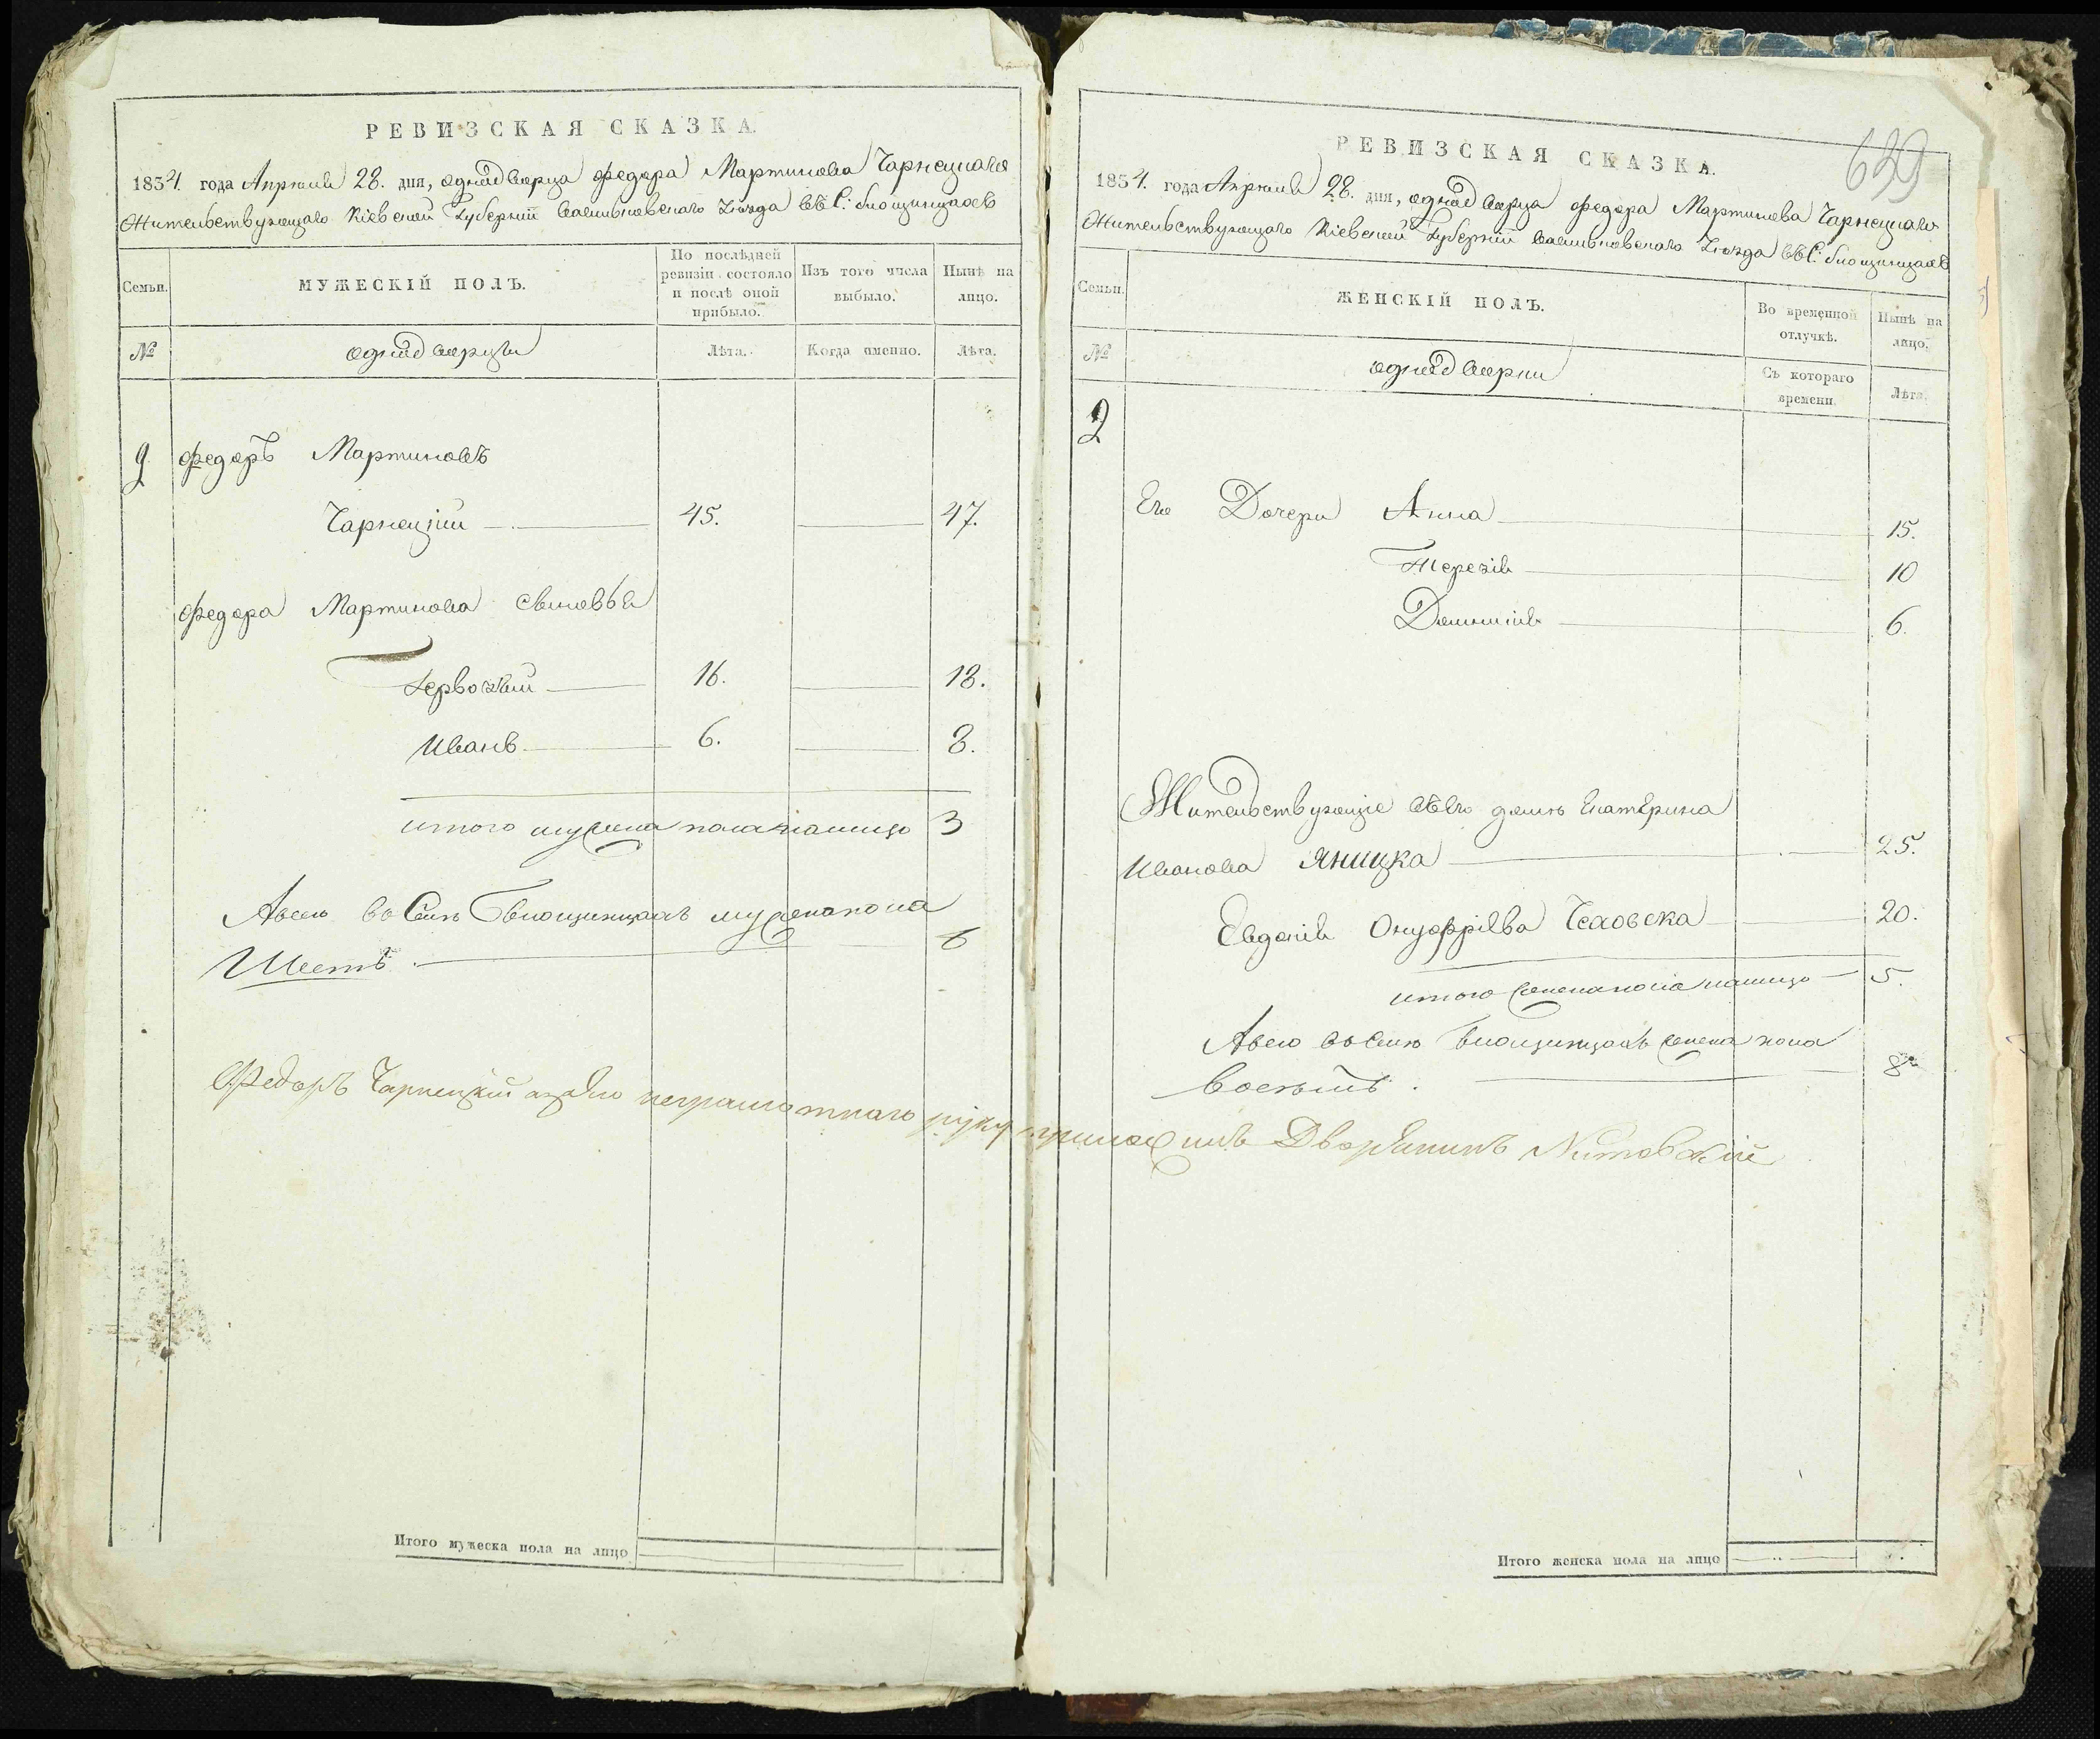 РЕВИЗСКАЯ СКАЗКА.
1834. года Апреля 28. дня, однодворца Федора Мартинова Чарнецкаго
Жительствующаго Кіевской Губерніи Васильковскаго Уѣзда въ С:
Семьи.
МУЖЕСКІЙ ПОЛЪ.
По послѣдней ревизіи состояло и послѣ оной прибыло.
Изъ того числа выбыло.
Нынѣ на лицо.
№
однодворцы
Лѣта.
Когда именно.
Лѣта.
2 Федоръ Мартиновъ
Чарнецкій 45. 47.
Федора Мартинова Сыновья
Гервозій 16. 18.
Иванъ 6. 8.
итого мужеска пола налицо 3
Авсего въ Селе мужеска пола
Шесть. 6
Федоръ Чарнецкій а занего неграмотнаго руку приложилъ Дворянинъ
Итого мужеска пола на лицо
639
РЕВИЗСКАЯ СКАЗКА.
1834. года Апреля 28. дня, однодворца Федора Мартинова Чарнецкаго
Жительствующаго Кіевской Губерніи Васильковскаго Уѣзда въ С:
Семьи.
ЖЕНСКІЙ ПОЛЪ.
Во временной отлучкѣ.
Нынѣ на лицо.
№
однодворки
Съ котораго времени.
Лѣта.
2
Его Дочери Анна 15.
Терезія 10
Доминія 6.
Жительствующіе въ его доме Екатерина
Иванова Яницка 25.
Евдокія Онуфріева Чеховска 20.
итого женска пола налицо 5.
Авсего въ Селе женска пола
Восемь. 8
Итого женска пола на лицо